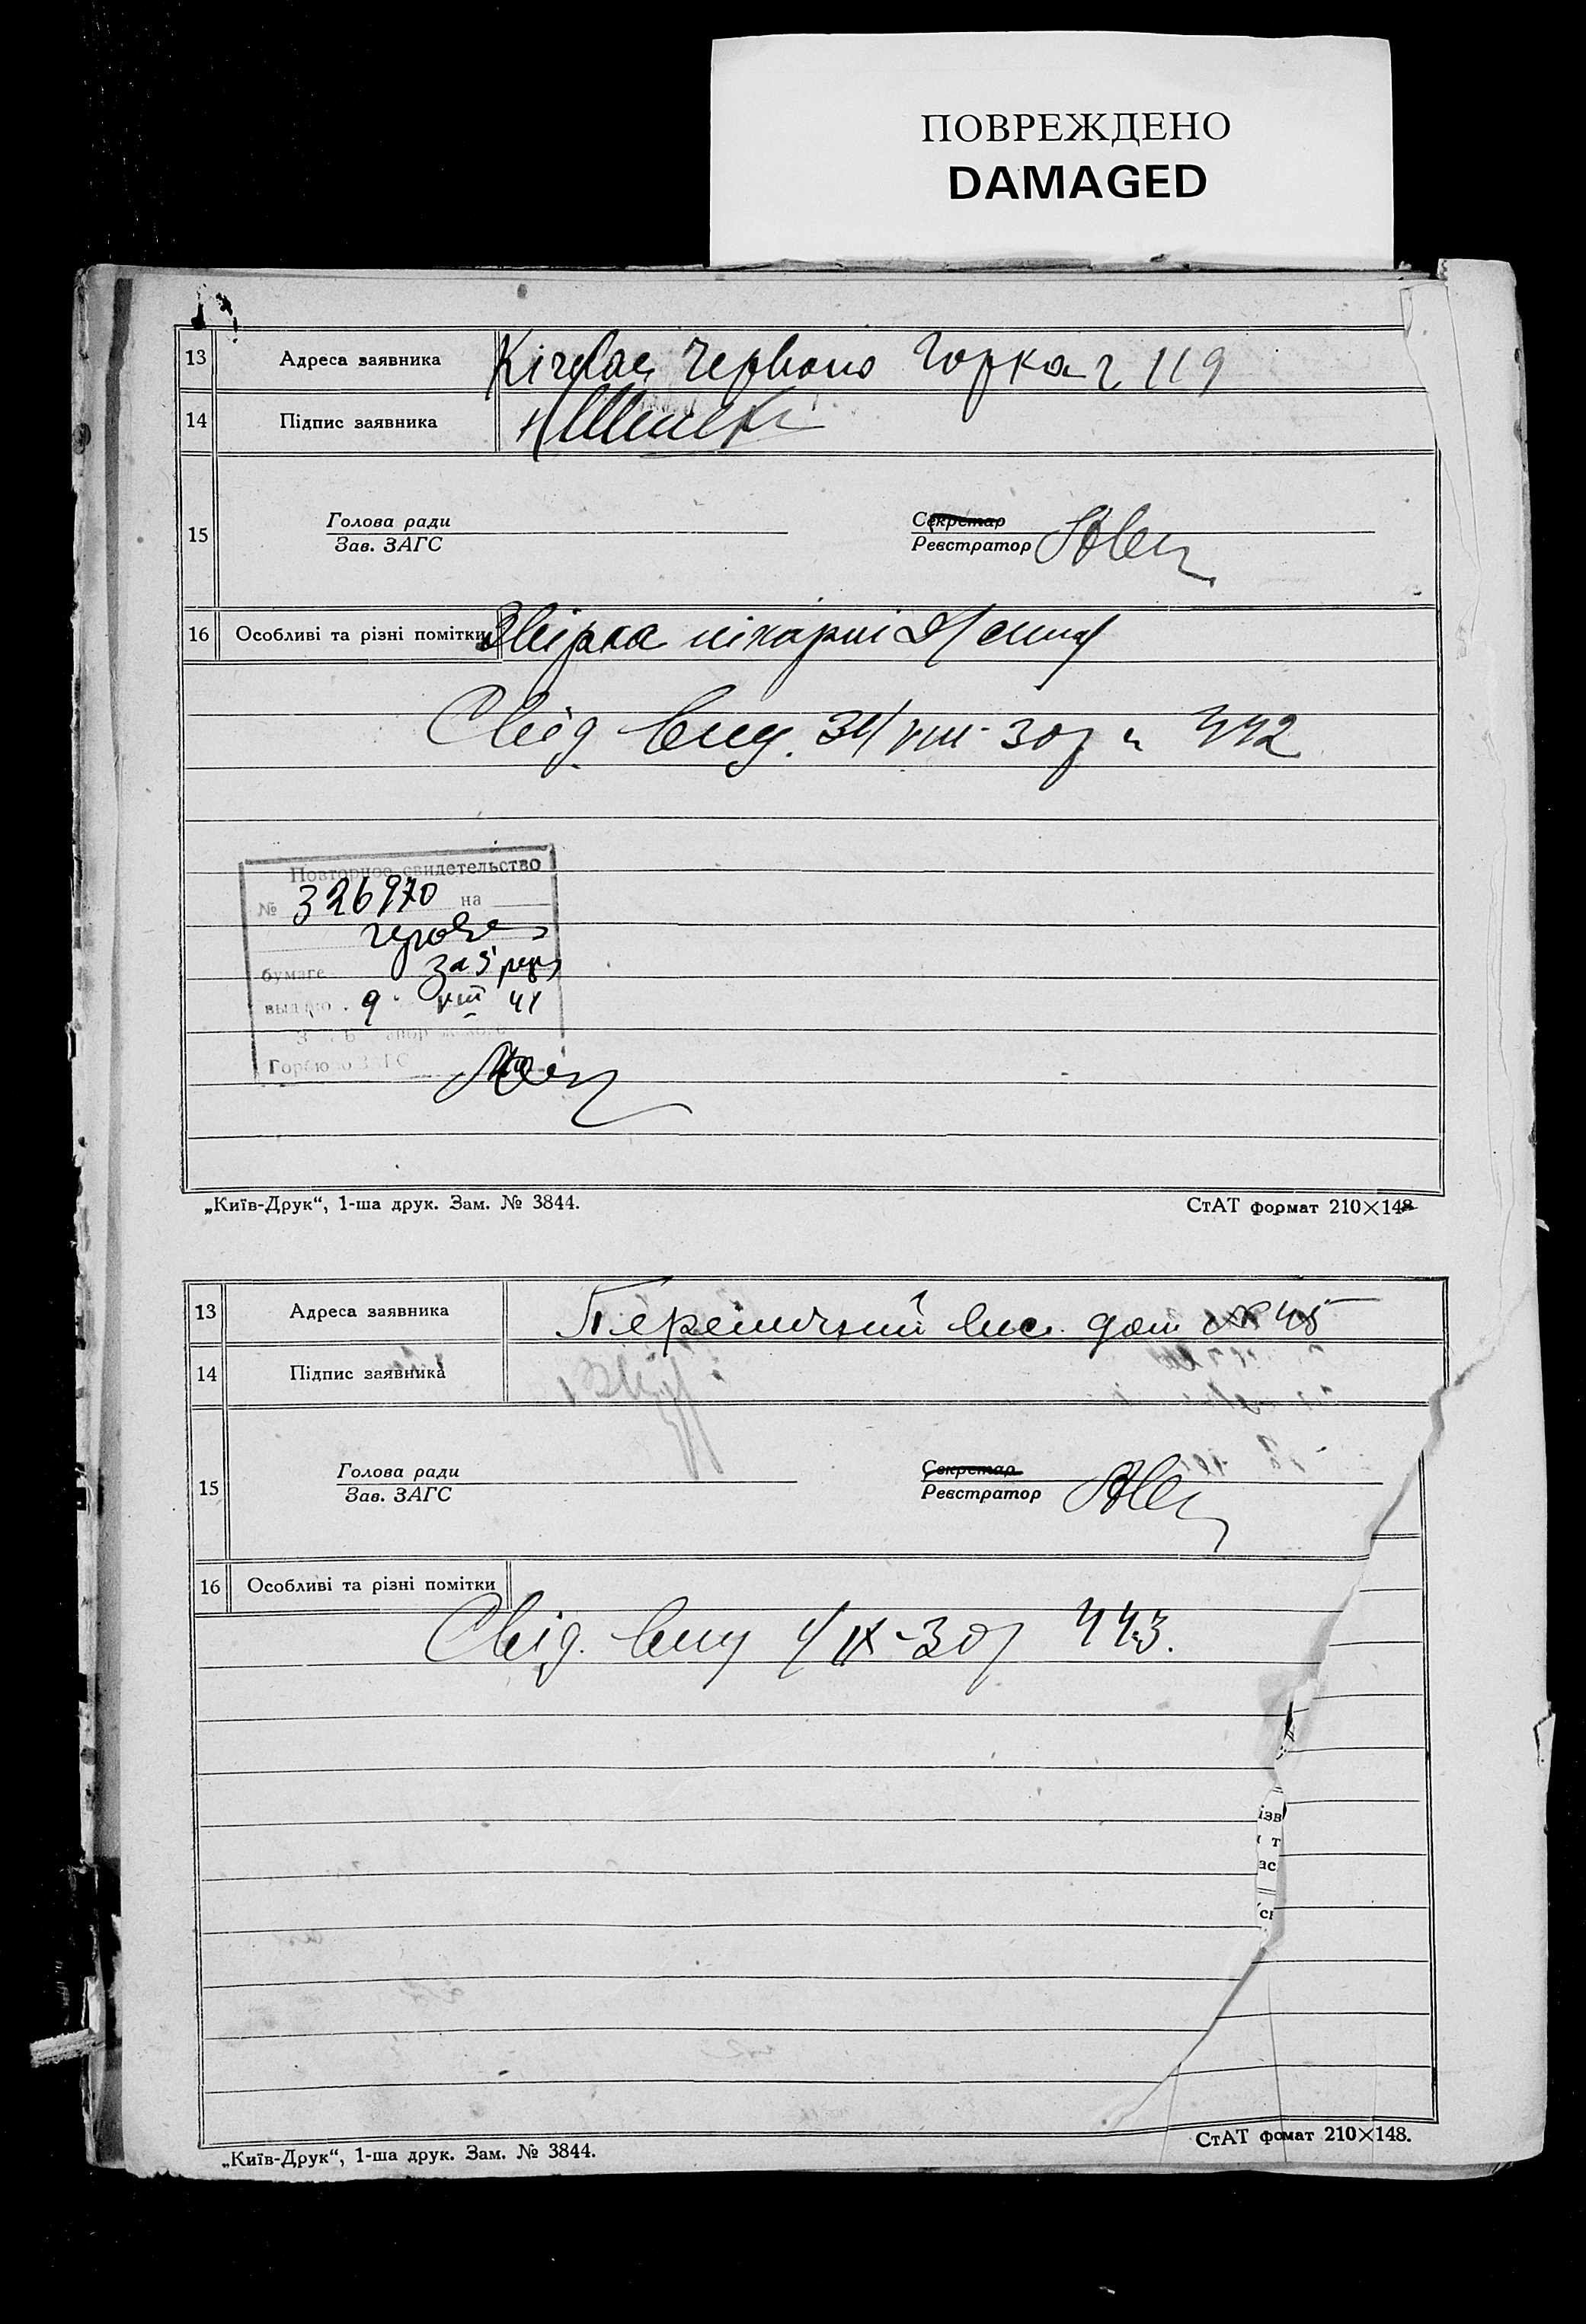 ПОВРЕЖДЕНО
DAMAGED
13 Адреса заявника Кічкас Червона Горка 119
14 Підпис заявника
Голова ради Секретар
15
Зав. ЗАГС Реєстратор
16 Особливі та різні помітки
Свід. вид. 31/VIII-30р 442
Повторное свидетельство
№ 326970 на
гербов
бумаге за 5 руб
выдано 9 VIII 41
„Київ-Друк“, 1-ша друк. Зам. № 3844. СтАТ формат 210×148
13 Адреса заявника вис. дом № 45
14 Підпис заявника
Голова ради Секретар
15
Зав. ЗАГС Реєстратор
16 Особливі та різні помітки
Свід. вид 1/IX-30р 443.
ізв
т
ас
сі
„Київ-Друк“, 1-ша друк. Зам. № 3844. СтАТ фомат 210×148.